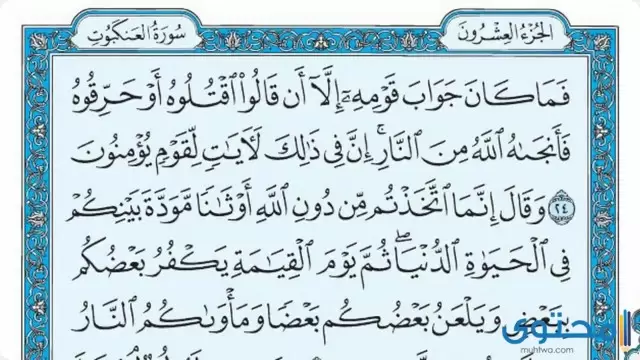 سُورَةُ العَنكَبُوتِ الجُزْءُ العِشْرُونَ
فَمَا كَانَ جَوَابَ قَوْمِهِۦٓ إِلَّآ أَن قَالُوا۟ ٱقْتُلُوهُ أَوْ حَرِّقُوهُ
فَأَنجَىٰهُ ٱللَّهُ مِنَ ٱلنَّارِ ۚ إِنَّ فِى ذَٰلِكَ لَـَٔايَٰتٍ لِّقَوْمٍ يُؤْمِنُونَ
٢٤ وَقَالَ إِنَّمَا ٱتَّخَذْتُم مِّن دُونِ ٱللَّهِ أَوْثَٰنًا مَّوَدَّةَ بَيْنِكُمْ
فِى ٱلْحَيَوٰةِ ٱلدُّنْيَا ۖ ثُمَّ يَوْمَ ٱلْقِيَٰمَةِ يَكْفُرُ بَعْضُكُم
بِبَعْضٍ وَيَلْعَنُ بَعْضُكُم بَعْضًا وَمَأْوَىٰكُمُ ٱلنَّارُ
محتوى
muhtwa.com